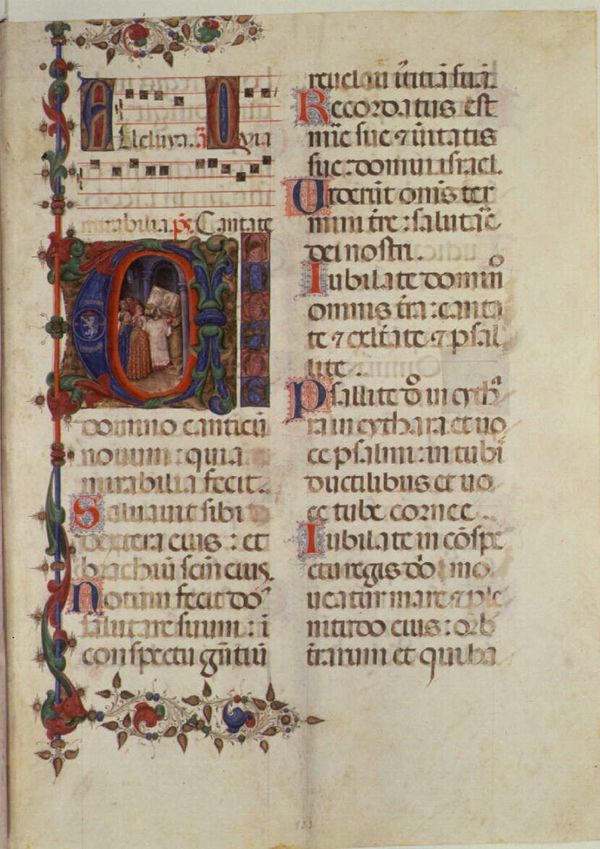 Alleluya. ā Quia
mirabilia. ps̄. Cantate
domino canticū
novum : quia
mirabilia fecit.
Salvavit sibi
dextera eius : et
brachiū scm̄ eius.
Notum fecit do
salutare suum : ī
conspectu gn̄tiū
revelavit suā.
Recordatus est
mīe sue ⁊ v̄itatis
sue : domui israel.
Viderūt omīs ter
mini t̄re : salutare
dei nostri.
Iubilate domino
omnis t̄ra : canta
te ⁊ exl̄tate ⁊ psal
lite.
Psallite dō in cytha
ra in cythara et vo
ce psalmi : in tubi
ductilibus et vo
ce tube cornee.
Iubilate in cōspe
ctu regis dōi mo
veatur mare ⁊ ple
nitudo eius : orb
t̄rarum et qui ha